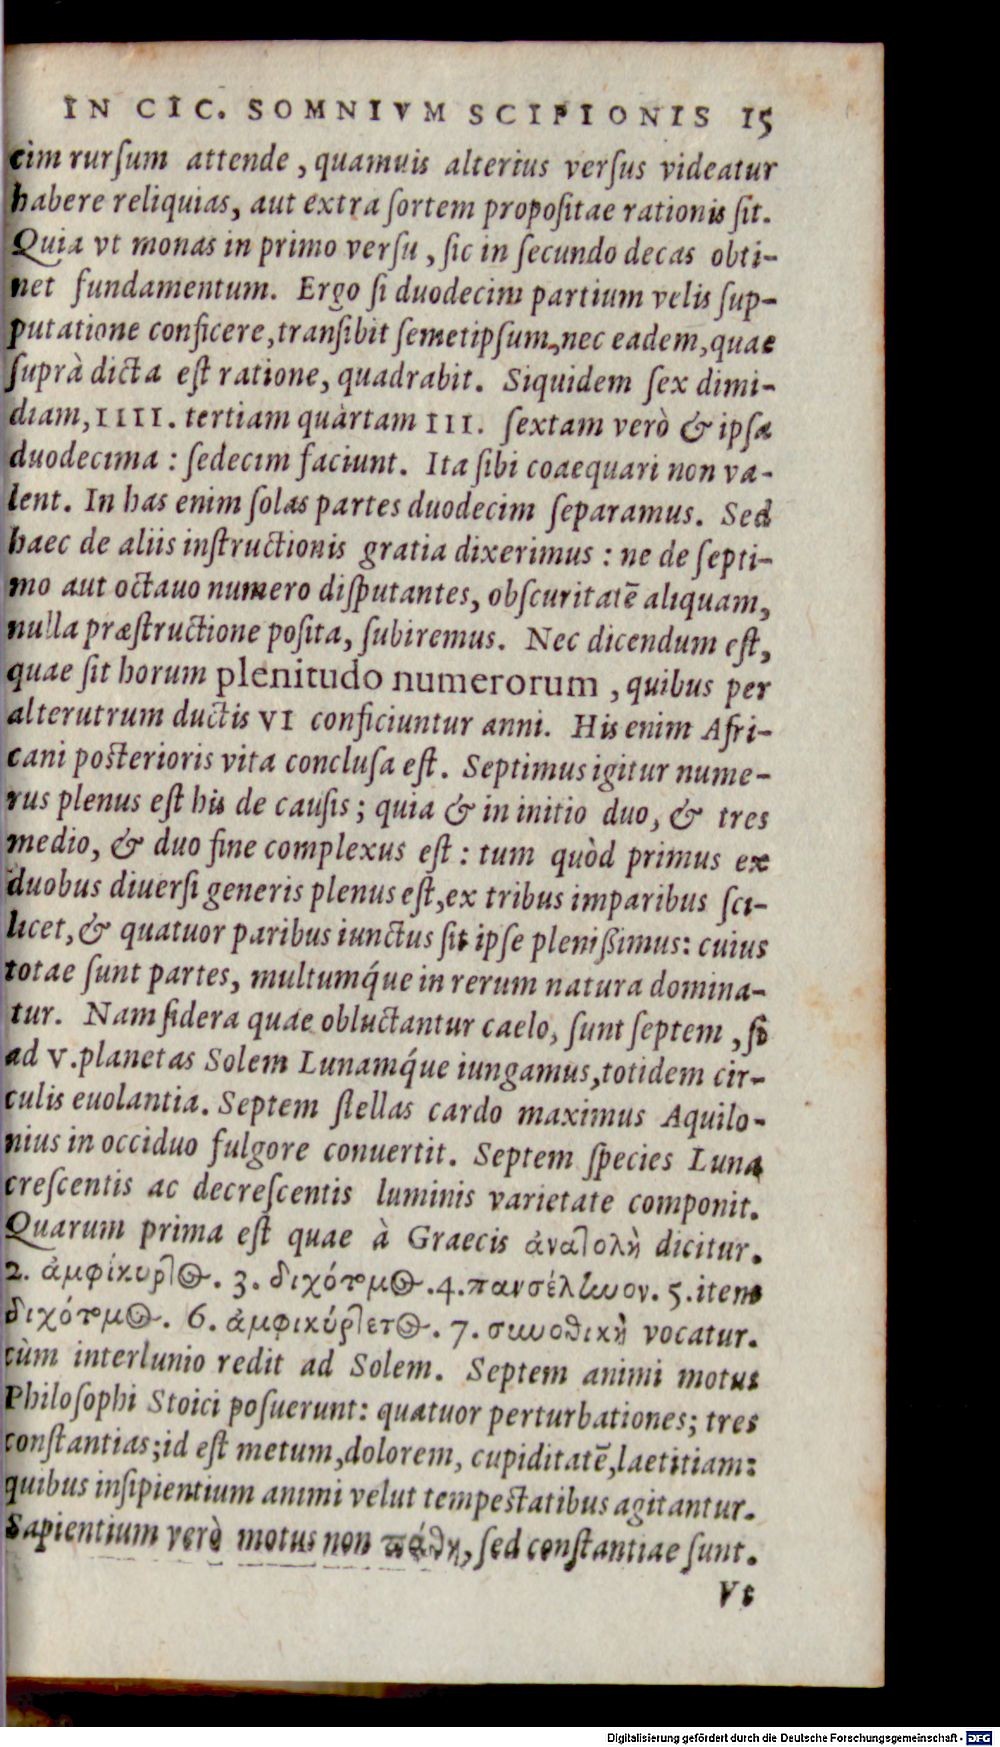 IN CIC. SOMNIVM SCIPIONIS 15
cim rurſum attende, quamuis alterius verſus videatur
habere reliquias, aut extra ſortem propoſitae rationis ſit.
Quia vt monas in primo verſu, ſic in ſecundo decas obti-
net fundamentum. Ergo ſi duodecim partium velis ſup-
putatione conficere, tranſibit ſemetipſum, nec eadem, quae
ſuprà dicta eſt ratione, quadrabit. Siquidem ſex dimi-
diam, IIII. tertiam quàrtam III. ſextam verò & ipſa
duodecima: ſedecim faciunt. Ita ſibi coaequari non va-
lent. In has enim ſolas partes duodecim ſeparamus. Sed
haec de aliis inſtructionis gratia dixerimus: ne de ſepti-
mo aut octauo numero diſputantes, obſcuritatē aliquam,
nulla præſtructione poſita, ſubiremus. Nec dicendum eſt,
quae ſit horum plenitudo numerorum, quibus per
alterutrum ductis VI conficiuntur anni. His enim Afri-
cani poſterioris vita concluſa eſt. Septimus igitur nume-
rus plenus eſt his de cauſis; quia & in initio duo, & tres
medio, & duo fine complexus eſt: tum quòd primus ex
duobus diuerſi generis plenus eſt, ex tribus imparibus ſci-
licet, & quatuor paribus iunctus ſit ipſe pleniſſimus: cuius
totae ſunt partes, multumq́ue in rerum natura domina-
tur. Nam ſidera quae obluctantur caelo, ſunt ſeptem, ſi
ad V. planetas Solem Lunamq́ue iungamus, totidem cir-
culis euolantia. Septem ſtellas cardo maximus Aquilo-
nius in occiduo fulgore conuertit. Septem ſpecies Luna
creſcentis ac decreſcentis luminis varietate componit.
Quarum prima eſt quae à Graecis ἀνατολὴ dicitur.
2. ἀμφίκυρτος. 3. διχότομος. 4. πανσέλωον. 5. item
διχότομος. 6. ἀμφικύρτετος. 7. συνοδικὴ vocatur.
cùm interlunio redit ad Solem. Septem animi motus
Philoſophi Stoici poſuerunt: quatuor perturbationes; tres
conſtantias; id eſt metum, dolorem, cupiditatē, laetitiam:
quibus inſipientium animi velut tempeſtatibus agitantur.
Sapientium verò motus non πάθη, ſed conſtantiae ſunt.
Vt
Digitalisierung gefördert durch die Deutsche Forschungsgemeinschaft - DFG